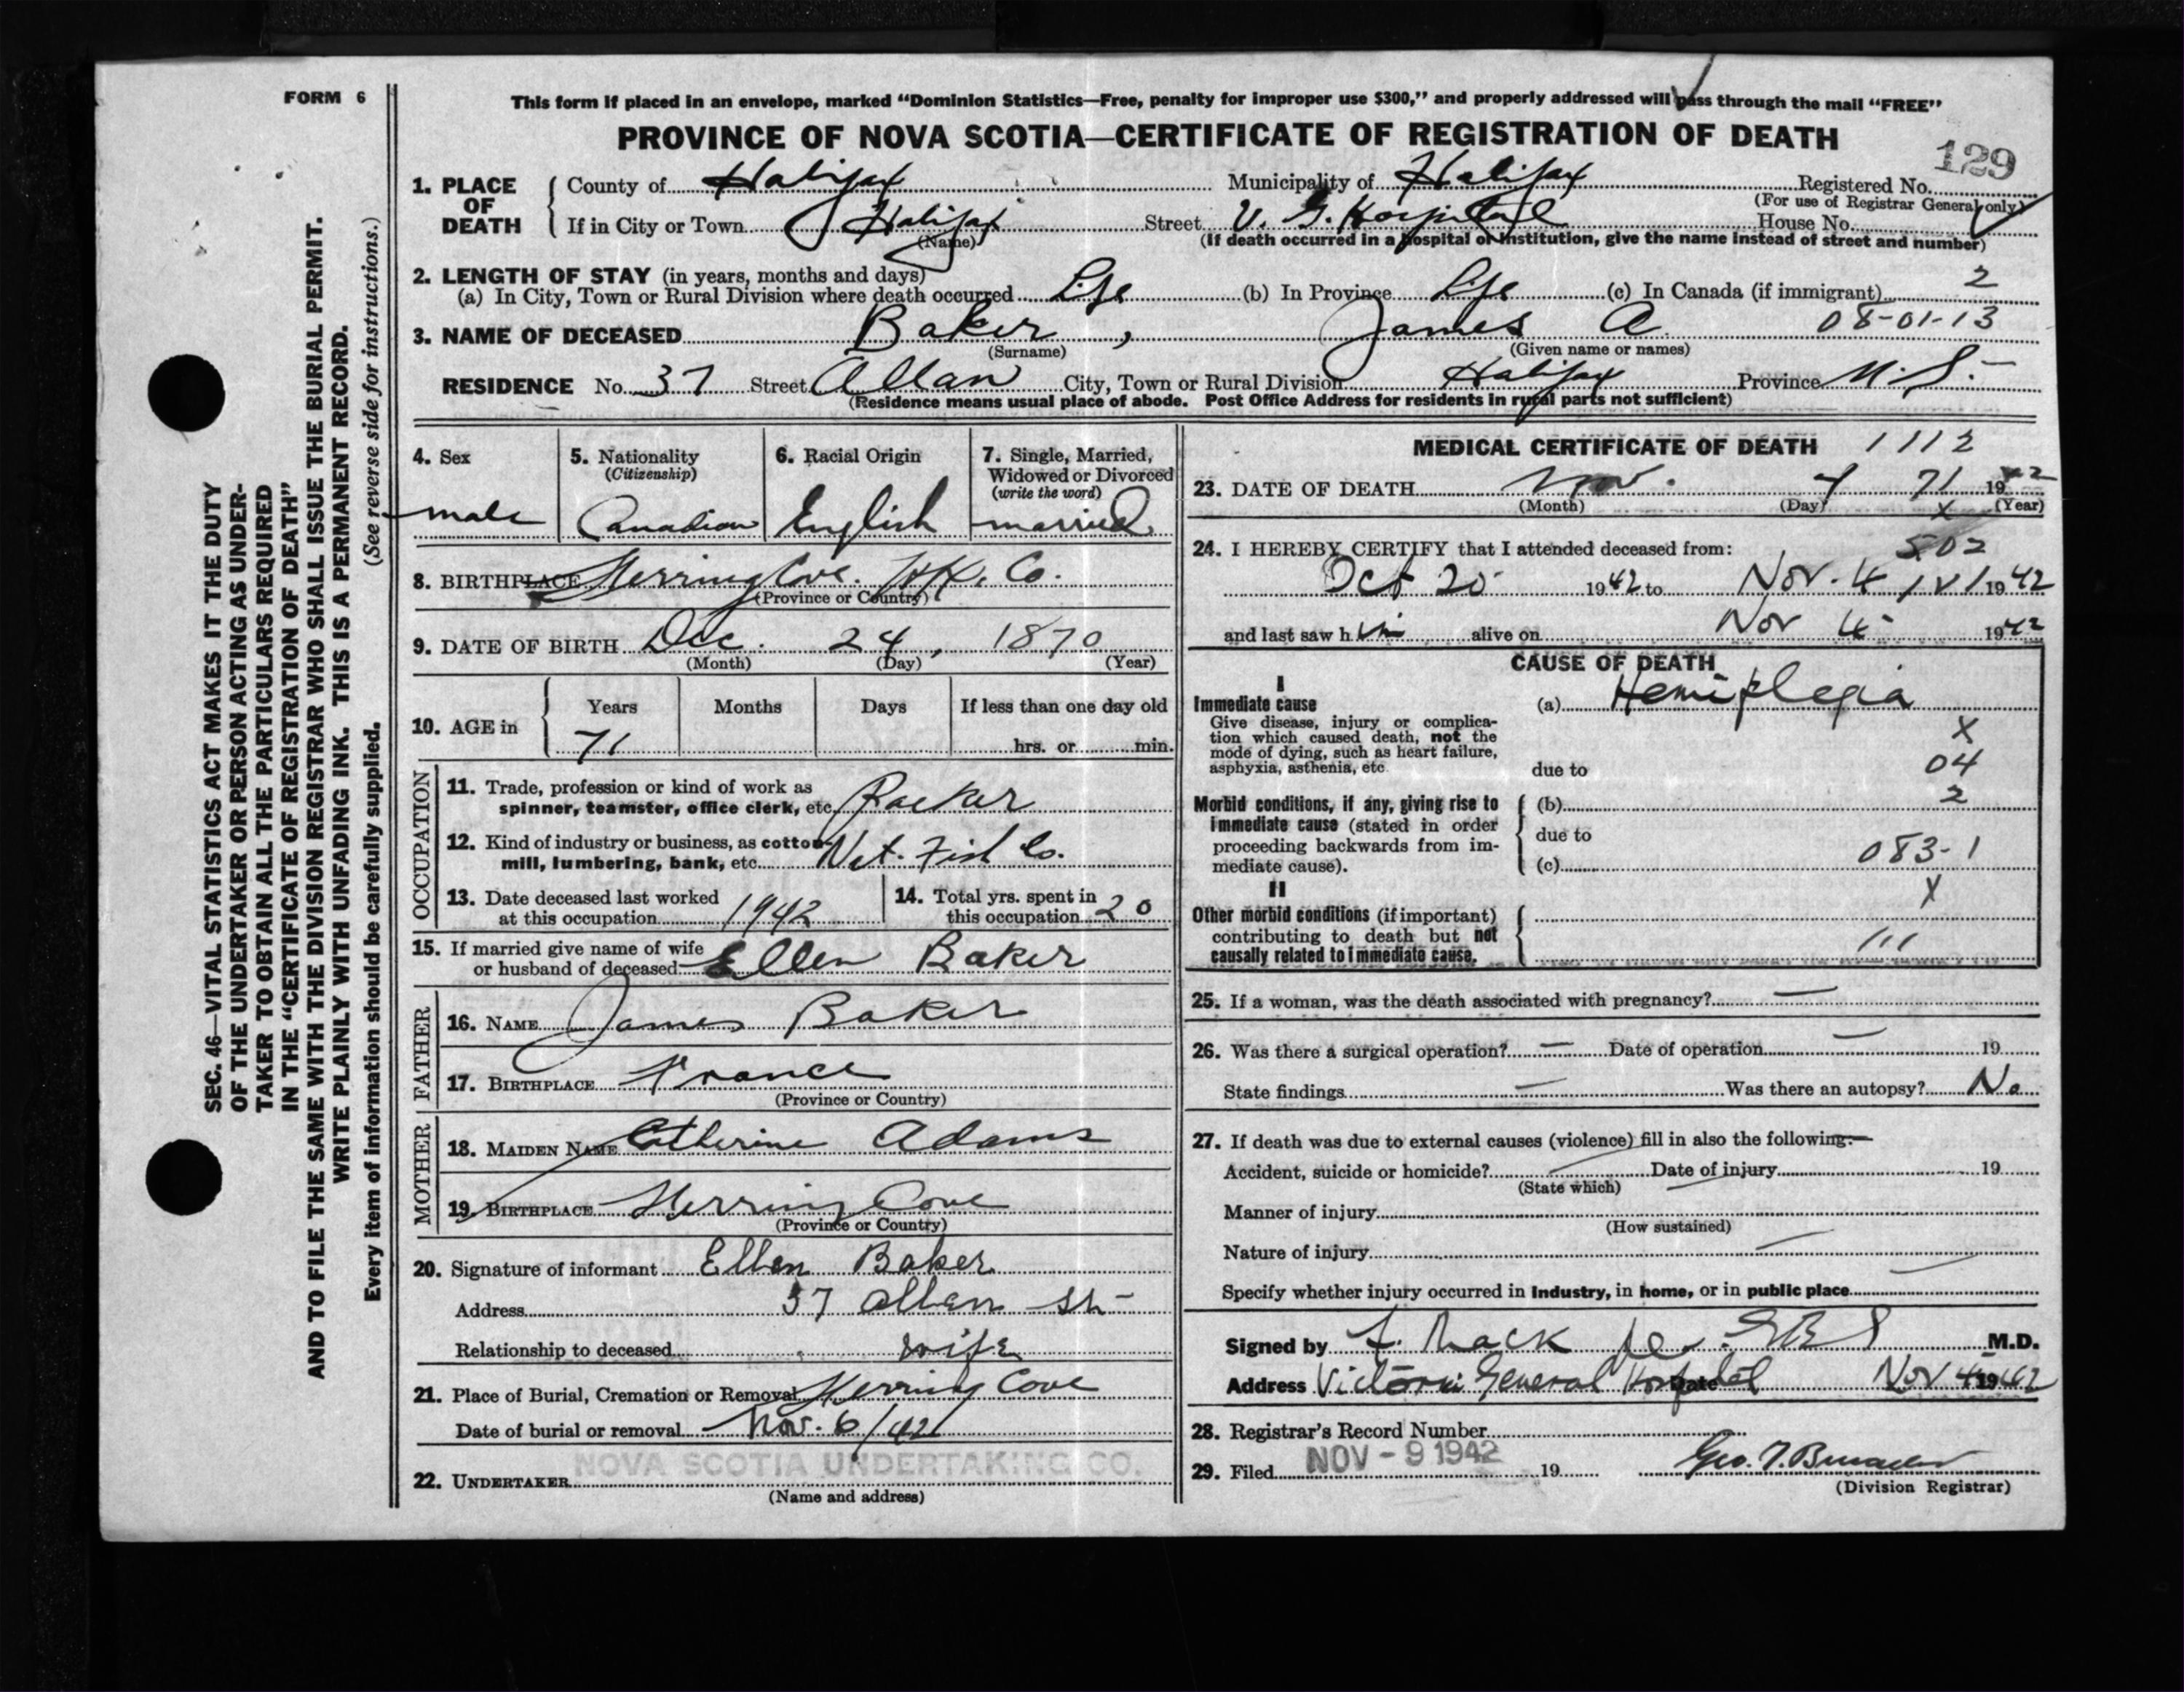 FORM 6
This form if placed in an envelope, marked “Dominion Statistics—Free, penalty for improper use $300,” and properly addressed will pass through the mail “FREE”
PROVINCE OF NOVA SCOTIA—CERTIFICATE OF REGISTRATION OF DEATH
129
1. PLACE OF DEATH County of Halifax Municipality of Halifax Registered No.
(For use of Registrar General only)
If in City or Town Halifax Street V. G. Hospital House No.
(Name) (If death occurred in a hospital or institution, give the name instead of street and number)
2. LENGTH OF STAY (in years, months and days)
(a) In City, Town or Rural Division where death occurred Life (b) In Province Life (c) In Canada (if immigrant) 2
3. NAME OF DECEASED Baker , James A 08-01-13
(Surname) (Given name or names)
RESIDENCE No. 37 Street Allan City, Town or Rural Division Halifax Province N.S.
(Residence means usual place of abode. Post Office Address for residents in rural parts not sufficient)
4. Sex
male
5. Nationality
(Citizenship)
Canadian
6. Racial Origin
English
7. Single, Married,
Widowed or Divorced
(write the word)
married
8. BIRTHPLACE Herring Cove. Hfx. Co.
(Province or Country)
9. DATE OF BIRTH Dec. 24, 1870
(Month) (Day) (Year)
10. AGE in Years Months Days If less than one day old
71 hrs. or min.
OCCUPATION
11. Trade, profession or kind of work as
spinner, teamster, office clerk, etc. Packer
12. Kind of industry or business, as cotton
mill, lumbering, bank, etc. Nat. Fish Co.
13. Date deceased last worked
at this occupation 1942
14. Total yrs. spent in
this occupation 20
15. If married give name of wife
or husband of deceased Ellen Baker
FATHER
16. NAME James Baker
17. BIRTHPLACE France
(Province or Country)
MOTHER
18. MAIDEN NAME Catherine Adams
19. BIRTHPLACE Herring Cove
(Province or Country)
20. Signature of informant Ellen Baker
Address 37 Allen St-
Relationship to deceased wife
21. Place of Burial, Cremation or Removal Herring Cove
Date of burial or removal Nov. 6/42
22. UNDERTAKER NOVA SCOTIA UNDERTAKING CO.
(Name and address)
MEDICAL CERTIFICATE OF DEATH 1112
23. DATE OF DEATH Nov. 4 71 1942
(Month) (Day) X (Year)
24. I HEREBY CERTIFY that I attended deceased from: 502
Oct 20 1942 to Nov. 4 1942
and last saw him alive on Nov 4 1942
CAUSE OF DEATH
I
Immediate cause (a) Hemiplegia
Give disease, injury or complica-
tion which caused death, not the X
mode of dying, such as heart failure,
asphyxia, asthenia, etc. due to 04
Morbid conditions, if any, giving rise to (b) 2
immediate cause (stated in order due to
proceeding backwards from im-
mediate cause). (c) 083-1
II X
Other morbid conditions (if important)
contributing to death but not 111
causally related to immediate cause.
25. If a woman, was the death associated with pregnancy? —
26. Was there a surgical operation? — Date of operation — 19
State findings — Was there an autopsy? No
27. If death was due to external causes (violence) fill in also the following:—
Accident, suicide or homicide? Date of injury 19
(State which)
Manner of injury
(How sustained)
Nature of injury
Specify whether injury occurred in industry, in home, or in public place
Signed by F. Mack M.D.
Address Victoria General Hospital Date Nov 4 1942
28. Registrar's Record Number
29. Filed NOV - 9 1942 19
(Division Registrar)
SEC. 46—VITAL STATISTICS ACT MAKES IT THE DUTY
OF THE UNDERTAKER OR PERSON ACTING AS UNDER-
TAKER TO OBTAIN ALL THE PARTICULARS REQUIRED
IN THE “CERTIFICATE OF REGISTRATION OF DEATH”
AND TO FILE THE SAME WITH THE DIVISION REGISTRAR WHO SHALL ISSUE THE BURIAL PERMIT.
WRITE PLAINLY WITH UNFADING INK. THIS IS A PERMANENT RECORD.
Every item of information should be carefully supplied. (See reverse side for instructions.)